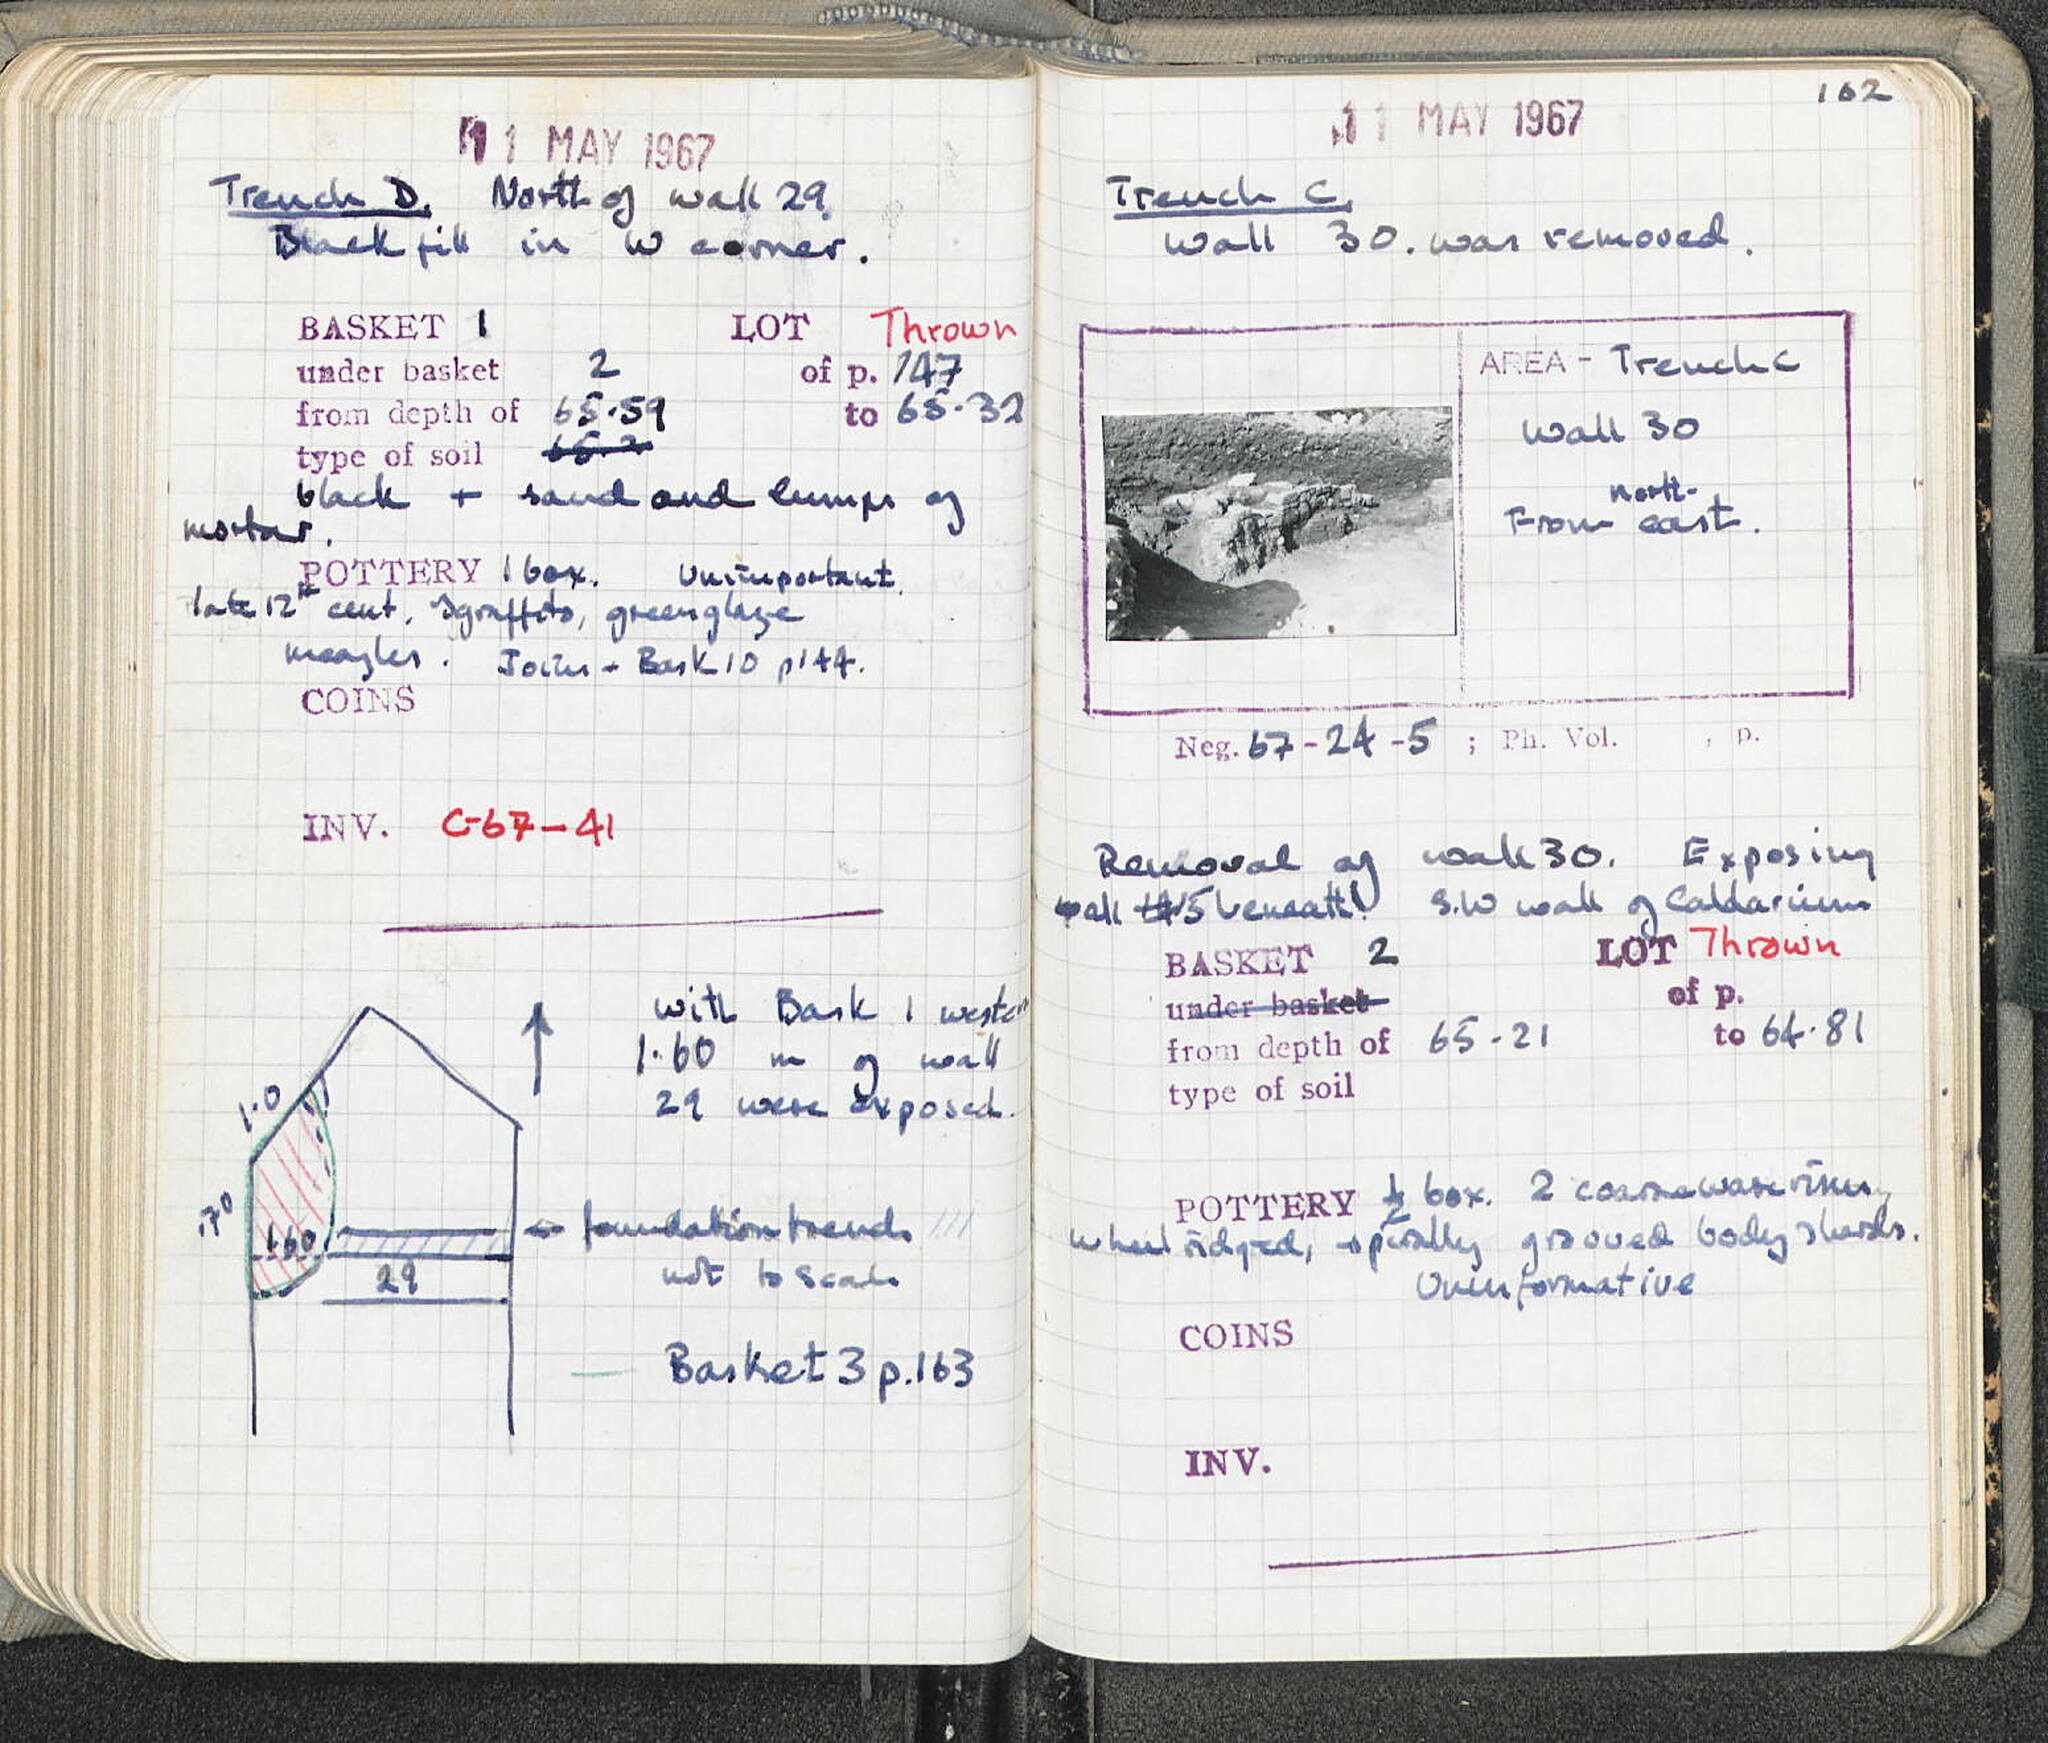 11 MAY 1967
Trench D. North of wall 29.
Black fill in W corner.
BASKET 1 LOT Thrown
under basket 2 of p. 147
from depth of 65.59 to 65.32
type of soil 65.2
black + sand and lumps of
mortar.
POTTERY 1 box. Unimportant.
late 12th cent. sgraffito, green glaze
measles. Joins - Bask 10 p144.
COINS
INV. C-67-41
with Bask 1 western
1.60 m of wall
29 were exposed.
1.0
.70
1.60
29
← foundation trench
not to scale
Basket 3 p.163
162
11 MAY 1967
Trench C.
Wall 30. was removed.
AREA - Trench C
Wall 30
north-
From east.
Neg. 67-24-5 ; Ph. Vol. , p.
Removal of wall 30. Exposing
wall 15 beneath! S.W wall of Caldarium
BASKET 2 LOT Thrown
under basket of p.
from depth of 65.21 to 64.81
type of soil
POTTERY ½ box. 2 coarse ware rims,
wheel ridged, spirally grooved body sherds.
Uninformative
COINS
INV.